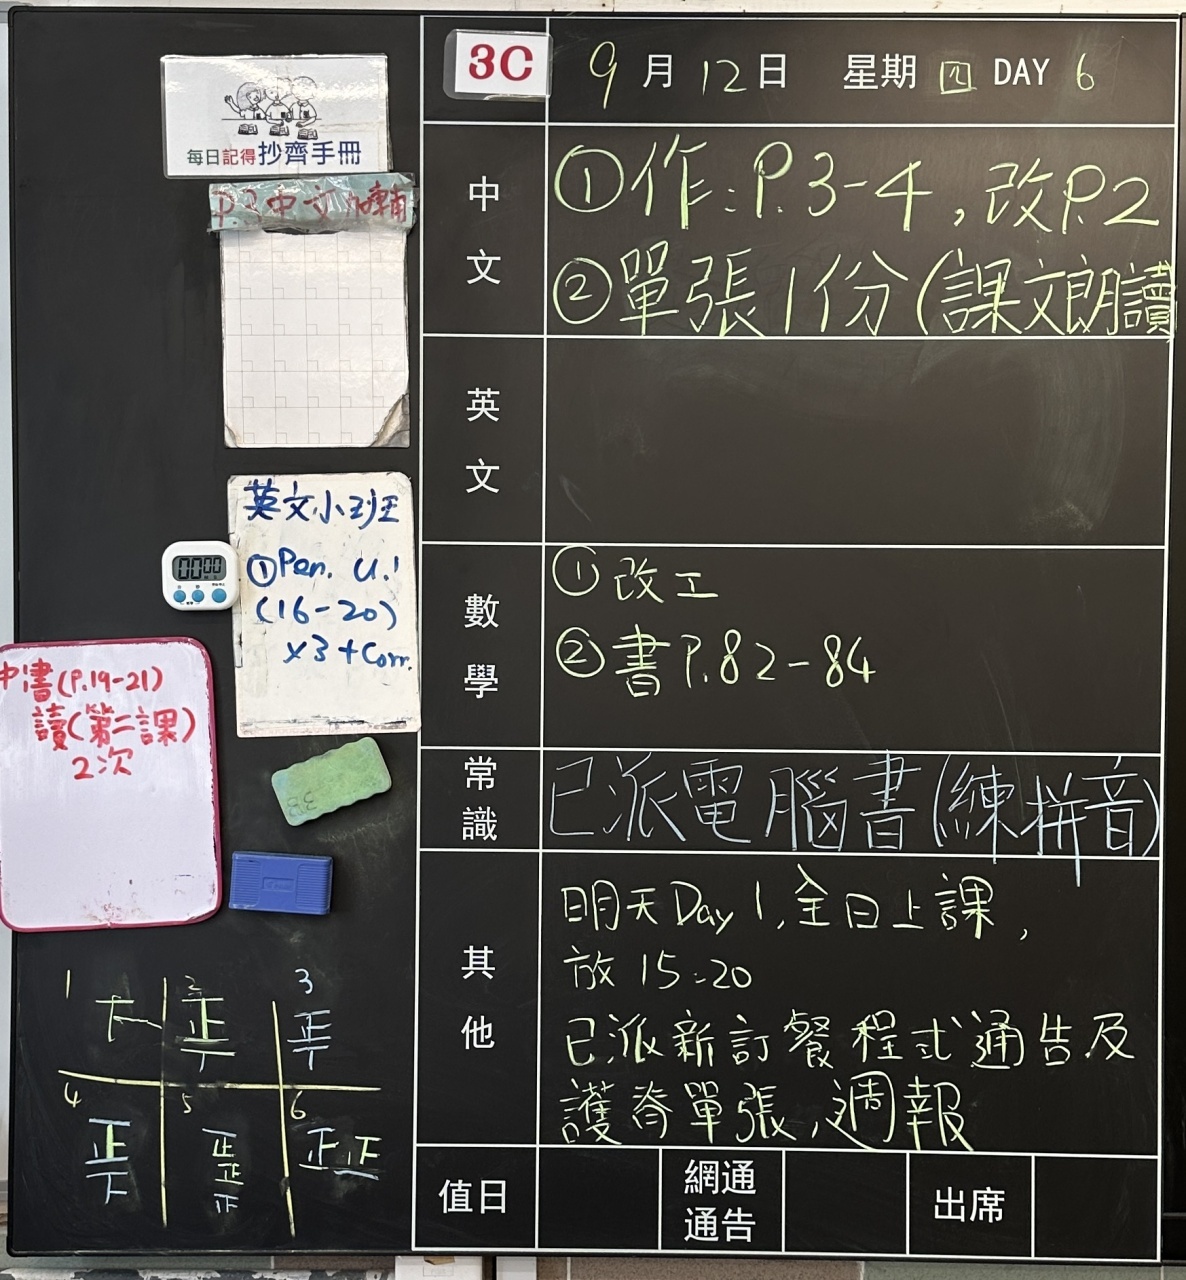 3C 9月12日 星期四 DAY 6
每日記得抄齊手冊
中文
①作:P.3-4,改P.2
②單張1份(課文朗讀
英文
數學
①改工
②書P.82-84
常識
已派電腦書(練拼音)
其他
明天Day 1,全日上課,
放15:20
已派新訂餐程式通告及
護脊單張,週報
值日
網通
通告
出席
P.3中文加輔
英文小班
①Pen. U.1
(16-20)
x3+Corr.
00:00
中書(P.19-21)
讀(第二課)
2次
1
2
正
3
正
4
正
5
正
正
正
6
正正